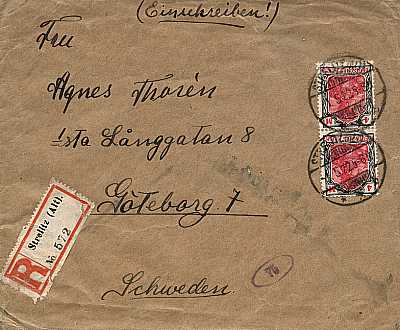 (Einschreiben!)
Fru
Agnes Thorén
1sta Långgatan 8
Göteborg. 7
Schweden.
R
Strelitz (Alt).
No. 572
76